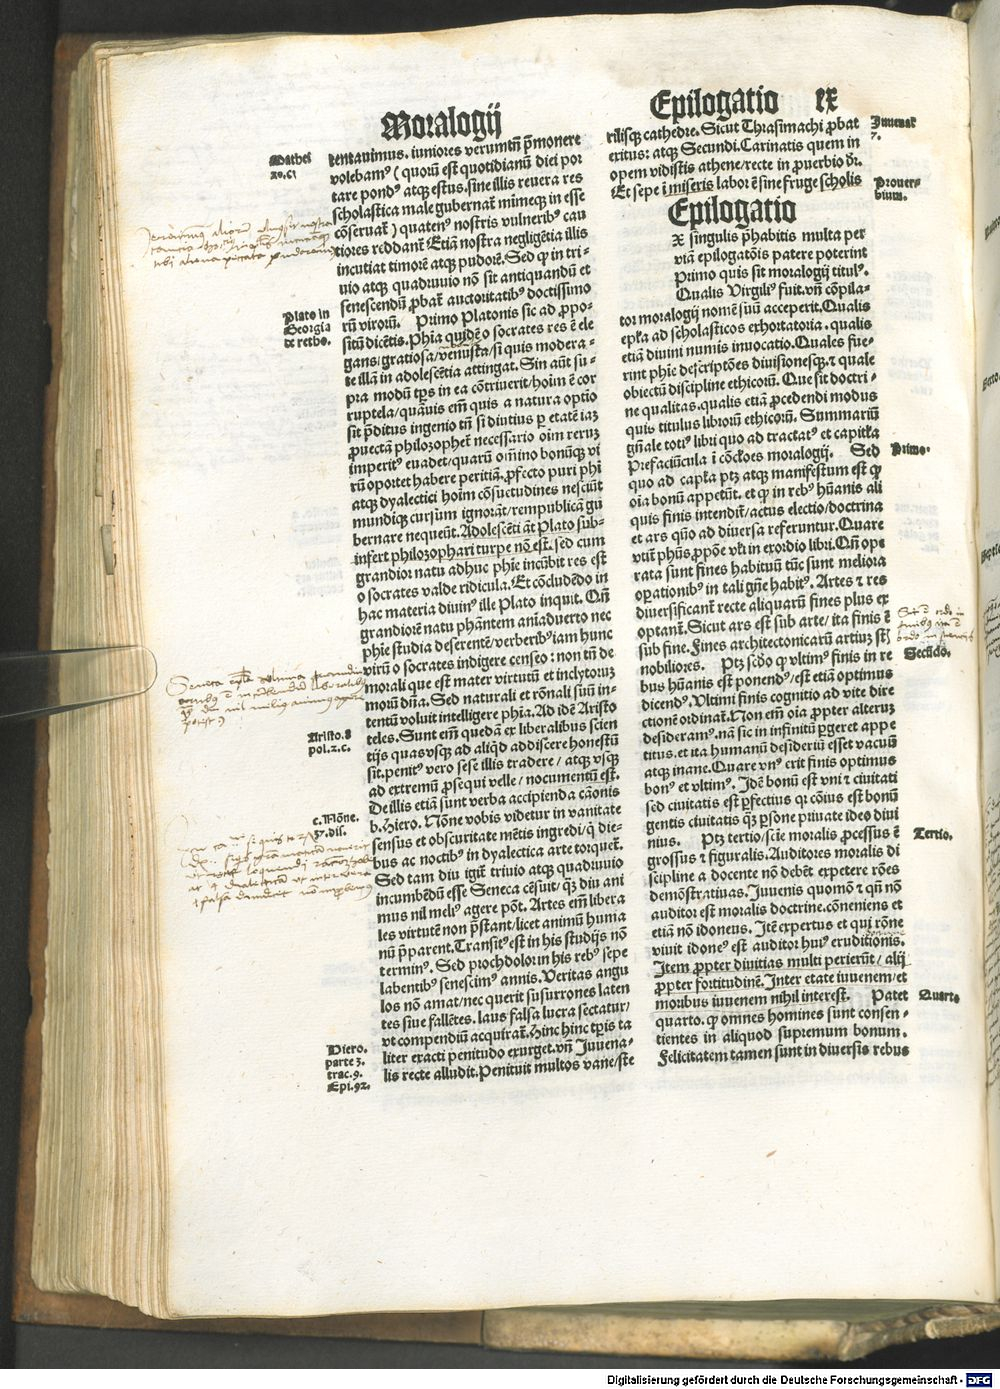 Moralogij
Epilogatio ix
tentauimus. iuniores verumtñ p̄monere
volebamꝰ (quorū est quotidianū diei por
tare pondꝰ atqꝫ estus. sine illis reuera res
scholastica male gubernaꝉ mīmeqꝫ in esse
cōseruaꝉ) quatenꝰ nostris vulneribꝰ cau
tiores reddanꝉ. Etiā nostra negligētia illis
incutiat timorē atqꝫ pudorē. Sed ꝙ in tri⸗
uio atqꝫ quadruuio nō sit antiquandū et
senescendū ꝓbaꝉ auctoritatibꝰ doctissimo
rū virorū. Primo Platonis sic ad ꝓpo⸗
sitū dicētis. Phia quidē o socrates res ē ele
gans/gratiosa/venusta/si quis modera⸗
te illā in adolescētia attingat. Sin aūt su⸗
pra modū tp̄s in ea cōtriuerit/hoīm ē cor
ruptela/quāuis em̄ quis a natura optio
sit p̄ditus ingenio tn̄ si diutius ꝑ etatē iaꝫ
ꝓuectā philozophet necessario oīm reruꝫ
imperitꝰ euadet/quarū om̄ino bonūqꝫ vi
rū oportet habere peritiā. ꝓfecto puri phī
atqꝫ dyalectici hoīm cōsuetudines nesciūt
mundiqꝫ cursum ignorāt/rempublicā gu
bernare nequeūt. Adolescēti āt Plato sub⸗
infert philozophari turpe nō est. sed cum
grandior natu adhuc phie incūbit res est
o socrates valde ridicula. Et cōcludēdo in
hac materia diuinꝰ ille Plato inquit. Qn̄
grandiorē natu phantem aniaduerto nec
phie studia deserentē/verberibꝰ iam hunc
virū o socrates indigere censeo: non tn̄ de
morali que est mater virtutū et inclytoruꝫ
morū dn̄a. Sed naturali et rōnali suū in⸗
tentū voluit intelligere phīa. Ad idē Aristo
teles. Sunt em̄ quedā ex liberalibus scien
tijs quasvsqꝫ ad aliqd addiscere honestū
sit. penitꝰ vero sese illis tradere/atqꝫ vsqꝫ
ad extremū ꝓsequi velle/nocumentū est.
De illis etiā sunt verba accipienda cāonis
b. Hiero. Nōne vobis videtur in vanitate
sensus et obscuritate mētis ingredi/q̄ die⸗
bus ac noctibꝰ in dyalectica arte torqueꝉ.
Sed tam diu igiꝉ triuio atqꝫ quadruuio
incumbēdū esse Seneca cēsuit/qꝫ diu ani
mus nil meliꝰ agere pōt. Artes em̄ libera
les virtutē non p̄stant/licet animū huma
nū p̄parent. Transitꝰ est in his studijs nō
terminꝰ. Sed prochdolor in his rebꝰ sepe
labentibꝰ senescimꝰ annis. Veritas angu
los nō amat/nec querit susurrones laten
tes siue fallētes. laus falsa lucra sectatur/
vt compendiū acquiraꝉ. Hinc hinc tp̄is ta
liter exacti penitudo exurget. vn̄ Juuena⸗
lis recte alludit. Penituit multos vane/ste
Mathei
20.c͛
Plato in
Georgia
de retho.
Aristo. 8
pol. 2. c.
c. Nōne.
37. dis.
Hiero.
parte 3.
trac. 9.
Epi. 92.
rilisqꝫ cathedre. Sicut Thrasimachi ꝓbat
exitus: atqꝫ Secundi. Carinatis quem in
opem vidistis athene/recte in ꝓuerbio dr̄.
Et sepe ī miseris labor ē sine fruge scholis
Epilogatio
X singulis p̄habitis multa per
viā epilogatōis patere poterint
Primo quis sit moralogij titulꝰ.
Qualis Virgiliꝰ fuit. vn̄ cōpila⸗
tor moralogij nomē suū acceperit. Qualis
ep̄la ad scholasticos exhortatoria. qualis
etiā diuini numis inuocatio. Quales fue⸗
rint phie descriptōes diuisionesqꝫ. ⁊ quale
obiectū discipline ethicorū. Que sit doctri⸗
ne qualitas. qualis etiā ꝓcedendi modus
quis titulus librorū ethicorū. Summariū
gn̄ale totiꝰ libri quo ad tractatꝰ et capitꝉa
Prefaciūcula ī cōckoes moralogij. Sed
quo ad capꝉa ptꝫ atqꝫ manifestum est ꝙ
oīa bonū appetūt. et ꝙ in rebꝰ hūanis ali
quis finis intendiꝉ/actus electio/doctrina
et ars quo ad diuersa referuntur. Quare
vtiꝉ phūs ꝓpōe vꝉi in exordio libri. Qn̄ ope
rata sunt fines habituū tūc sunt meliora
oꝑationibꝰ in tali gn̄e habitꝰ. Artes ⁊ res
diuersificanꝉ recte aliquarū fines plus ex
optanꝉ. Sicut ars est sub arte/ita finis ē
sub fine. Fines architectonicarū artiuꝫ sꝉ
nobiliores. Ptꝫ scd̄o ꝙ vltimꝰ finis in re
bus hūanis est ponendꝰ/est etiā optimus
dicendꝰ. Vltimi finis cognitio ad vite dire
ctionē ordinaꝉ. Non em̄ oīa ꝓpter alteruꝫ
desideramꝰ. nā sic in infinitū ꝑgeret appe
titus. et ita humanū desideriū esset vacuū
atqꝫ inane. Quare vnꝰ erit finis optimus
bonꝰ et vltimꝰ. Idē bonū est vni ⁊ ciuitati
sed ciuitatis est ꝑfectius qꝛ cōius est bonū
gentis ciuitatis qꝫ ꝑsone priuate ideo diui
nius. Ptꝫ tertio/scie moralis ꝓcessus ē
grossus ⁊ figuralis. Auditores moralis di
scipline a docente nō debēt expetere rōes
demōstratiuas. Juuenis quomō ⁊ qn̄ nō
auditor est moralis doctrine. cōneniens et
etiā nō idoneus. Itē expertus et qui rōne
viuit idoneꝰ est auditor huiꝰ eruditionis.
Item ꝓpter diuitias multi perierūt/alij
ꝓpter fortitudinē. Inter etate iuuenem/et
moribus iuuenem nihil interest. Patet
quarto. ꝙ omnes homines sunt consen⸗
tientes in aliquod supremum bonum.
Felicitatem tamen sunt in diuersis rebus
Juuenal
7.
Prouer⸗
bium.
Primo.
Secūdo.
Tertio.
Quarto
Digitalisierung gefördert durch die Deutsche Forschungsgemeinschaft - DFG